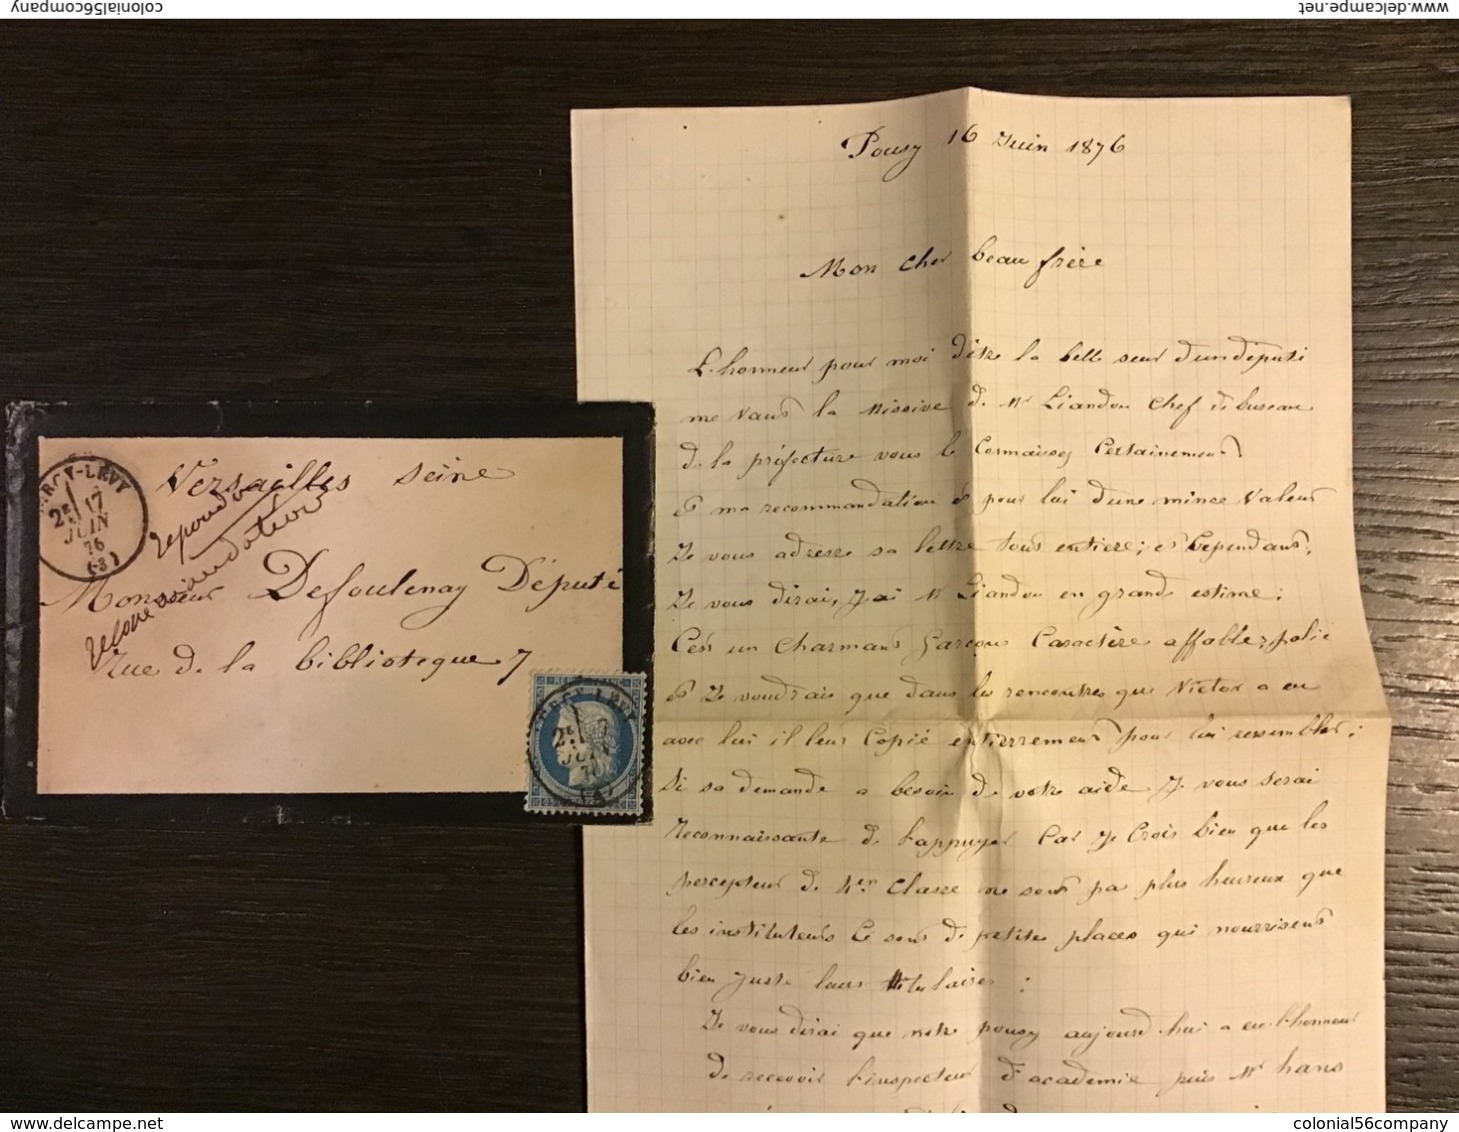 colonial56company
www.delcampe.net
Versailles Seine
repondu
recommandation
Monsieur Defoulenay Député
Rue de la bibliotegue 7
RCY-LEVY
2E 17
JUIN
76
(3)
REPUB FRANC
2E 17
JUIN
76
25
Pousy 16 Juin 1876
Mon cher beau frère
L'honneur pour moi d'être la bell seur d'un députi
me vaut la Missive de Mr Liandou chef de bureau
de la préfecture vous le Connaissez Certainement
et ma recommandation é pour lui d'une mince Valeur
Je vous adresse sa lettre tous entiere; et Cependant,
Je vous dirai, J'ai Mr Liandou en grande estime:
C'est un Charmant Garçon Caractère affable, polie
et Je voudrais que dans les rencontres que Victor a eu
avec lui il leur Copié entierrement pour lui ressembler;
Si sa demande a besoin de votre aide Je vous serai
reconnaissante de l'appuyer Car Je Crois bien que les
percepteur de 4er Classe ne sont pas plus heureux que
les instituteurs Ce sont de petites places qui nourrisent
bien juste leurs titulaires :
Je vous dirai que notre pousy aujourd'hui a eu l'honneur
de recevoir l'inspecteur d'academie puis Mr hans
www.delcampe.net
colonial56company